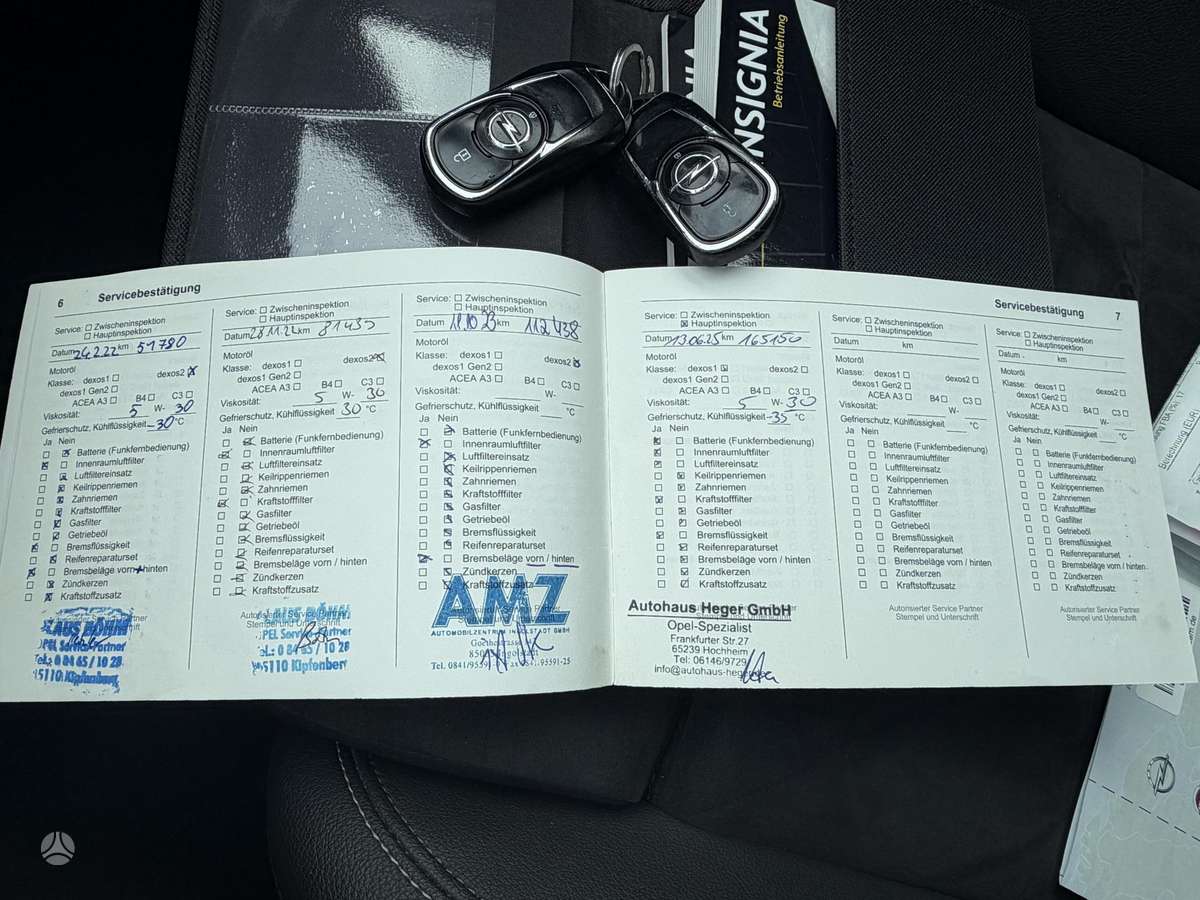 INSIGNIA
Betriebsanleitung
6 Servicebestätigung
Service: Zwischeninspektion
Hauptinspektion
Datum 24.2.22 km 51780
Motoröl
Klasse: dexos1 dexos2
dexos1 Gen2
ACEA A3 B4 C3
Viskosität: 5 W- 30
Gefrierschutz, Kühlflüssigkeit -30 °C
Ja Nein
Batterie (Funkfernbedienung)
Innenraumluftfilter
Luftfiltereinsatz
Keilrippenriemen
Zahnriemen
Kraftstofffilter
Gasfilter
Getriebeöl
Bremsflüssigkeit
Reifenreparaturset
Bremsbeläge vorn / hinten
Zündkerzen
Kraftstoffzusatz
OPEL Service Partner
Tel.: 0 84 65 / 10 28
85110 Kipfenberg
Service: Zwischeninspektion
Hauptinspektion
Datum 28.11.22 km 81433
Motoröl
Klasse: dexos1 dexos2
dexos1 Gen2
ACEA A3 B4 C3
Viskosität: 5 W- 30
Gefrierschutz, Kühlflüssigkeit 30 °C
Ja Nein
Batterie (Funkfernbedienung)
Innenraumluftfilter
Luftfiltereinsatz
Keilrippenriemen
Zahnriemen
Kraftstofffilter
Gasfilter
Getriebeöl
Bremsflüssigkeit
Reifenreparaturset
Bremsbeläge vorn / hinten
Zündkerzen
Kraftstoffzusatz
Autorisierter Service Partner
Stempel und Unterschrift
OPEL Service Partner
Tel.: 0 84 65 / 10 28
85110 Kipfenberg
Service: Zwischeninspektion
Hauptinspektion
Datum 18.10.23 km 112438
Motoröl
Klasse: dexos1 dexos2
dexos1 Gen2
ACEA A3 B4 C3
Viskosität: W-
Gefrierschutz, Kühlflüssigkeit °C
Ja Nein
Batterie (Funkfernbedienung)
Innenraumluftfilter
Luftfiltereinsatz
Keilrippenriemen
Zahnriemen
Kraftstofffilter
Gasfilter
Getriebeöl
Bremsflüssigkeit
Reifenreparaturset
Bremsbeläge vorn / hinten
Zündkerzen
Kraftstoffzusatz
AMZ
AUTOMOBILZENTRUM INGOLSTADT GMBH
Servicebestätigung 7
Service: Zwischeninspektion
Hauptinspektion
Datum 13.06.25 km 165150
Motoröl
Klasse: dexos1 dexos2
dexos1 Gen2
ACEA A3 B4 C3
Viskosität: 5 W- 30
Gefrierschutz, Kühlflüssigkeit -35 °C
Ja Nein
Batterie (Funkfernbedienung)
Innenraumluftfilter
Luftfiltereinsatz
Keilrippenriemen
Zahnriemen
Kraftstofffilter
Gasfilter
Getriebeöl
Bremsflüssigkeit
Reifenreparaturset
Bremsbeläge vorn / hinten
Zündkerzen
Kraftstoffzusatz
Autohaus Heger GmbH
Opel-Spezialist
Frankfurter Str.27
65239 Hochheim
Tel: 06146/9729
info@autohaus-heger
Service: Zwischeninspektion
Hauptinspektion
Datum km
Motoröl
Klasse: dexos1 dexos2
dexos1 Gen2
ACEA A3 B4 C3
Viskosität: W-
Gefrierschutz, Kühlflüssigkeit °C
Ja Nein
Batterie (Funkfernbedienung)
Innenraumluftfilter
Luftfiltereinsatz
Keilrippenriemen
Zahnriemen
Kraftstofffilter
Gasfilter
Getriebeöl
Bremsflüssigkeit
Reifenreparaturset
Bremsbeläge vorn / hinten
Zündkerzen
Kraftstoffzusatz
Autorisierter Service Partner
Stempel und Unterschrift
Service: Zwischeninspektion
Hauptinspektion
Datum km
Motoröl
Klasse: dexos1 dexos2
dexos1 Gen2
ACEA A3 B4 C3
Viskosität: W-
Gefrierschutz, Kühlflüssigkeit °C
Ja Nein
Batterie (Funkfernbedienung)
Innenraumluftfilter
Luftfiltereinsatz
Keilrippenriemen
Zahnriemen
Kraftstofffilter
Gasfilter
Getriebeöl
Bremsflüssigkeit
Reifenreparaturset
Bremsbeläge vorn / hinten
Zündkerzen
Kraftstoffzusatz
Autorisierter Service Partner
Stempel und Unterschrift